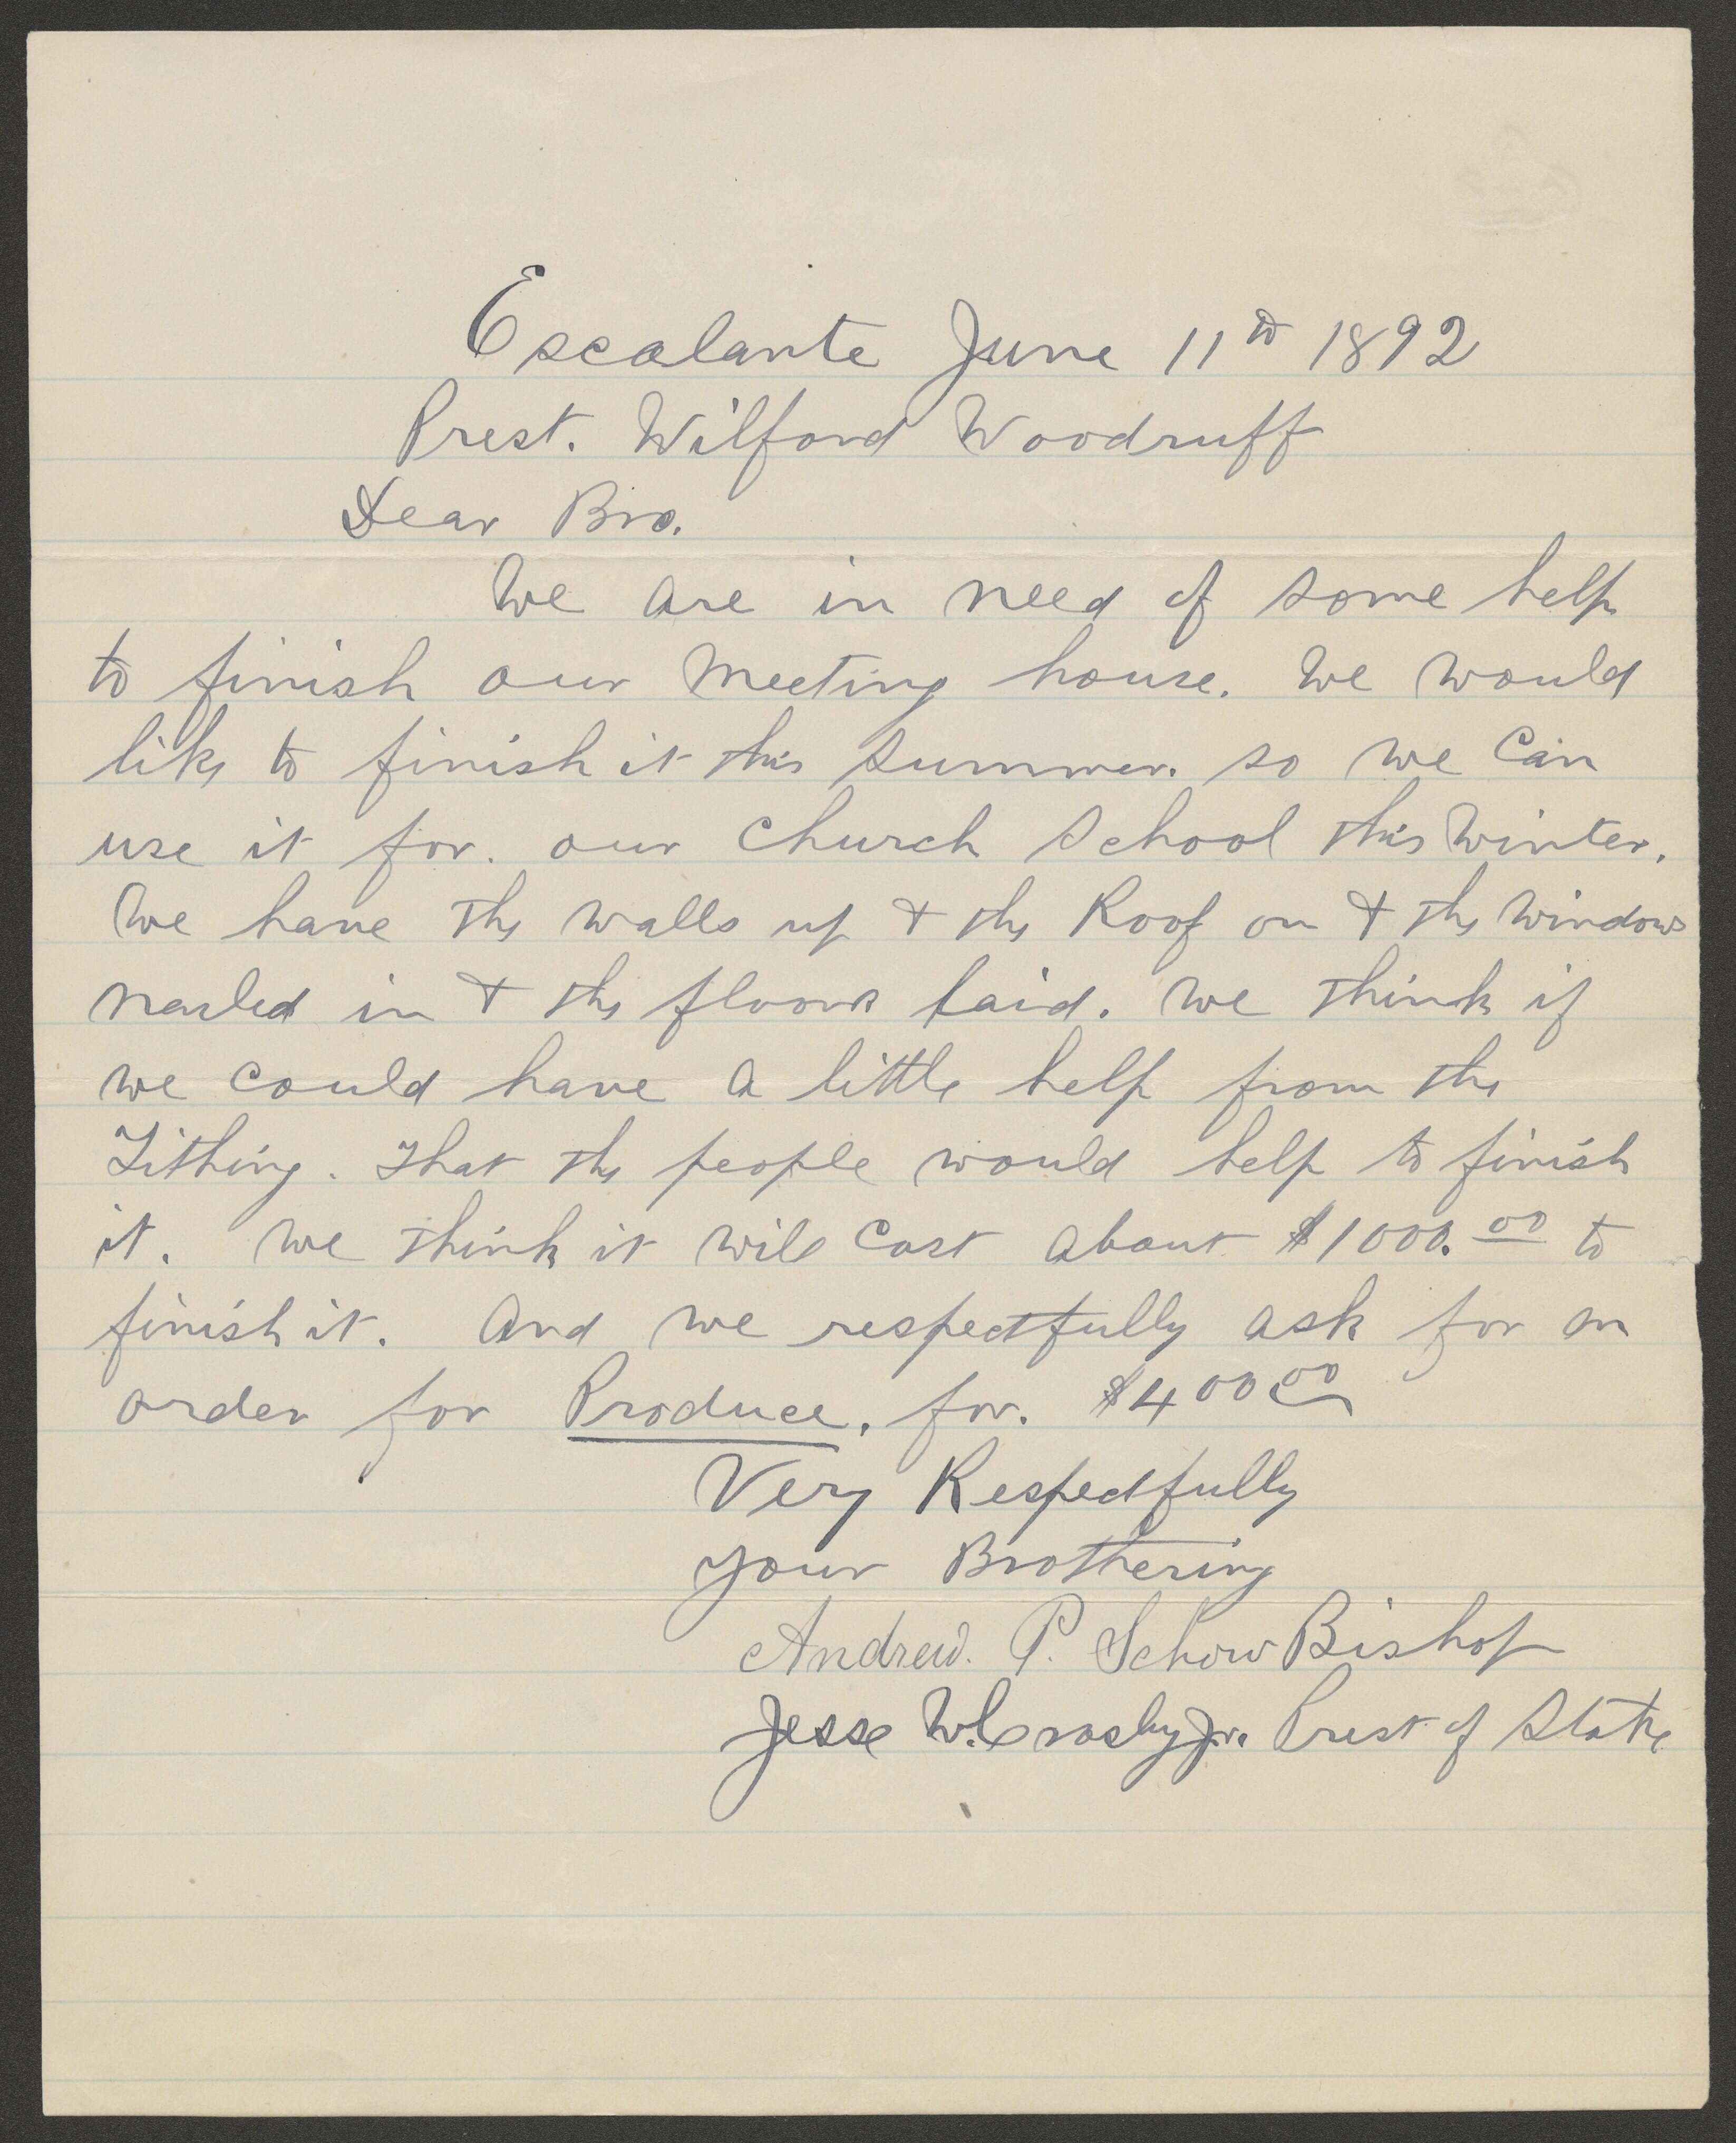 Escalante June 11th 1892
Prest. Wilford Woodruff
Dear Bro.
We are in need of some help
to finish our Meeting house. We would
like to finish it this Summer. so we Can
use it for. our Church School this Winter.
We have the walls up & the Roof on & the Windows
nailed in & the floors laid. We think if
we could have a little help from the
Tithing. that the people would help to finish
it. We think it will Cost about $1000.00 to
finish it. And we respectfully ask for an
order for Produce. for. $400.00
Very Respectfully
your Brothering
Andrew. P. Schow Bishop
Jesse W. Crosby Jr. Prest of Stake